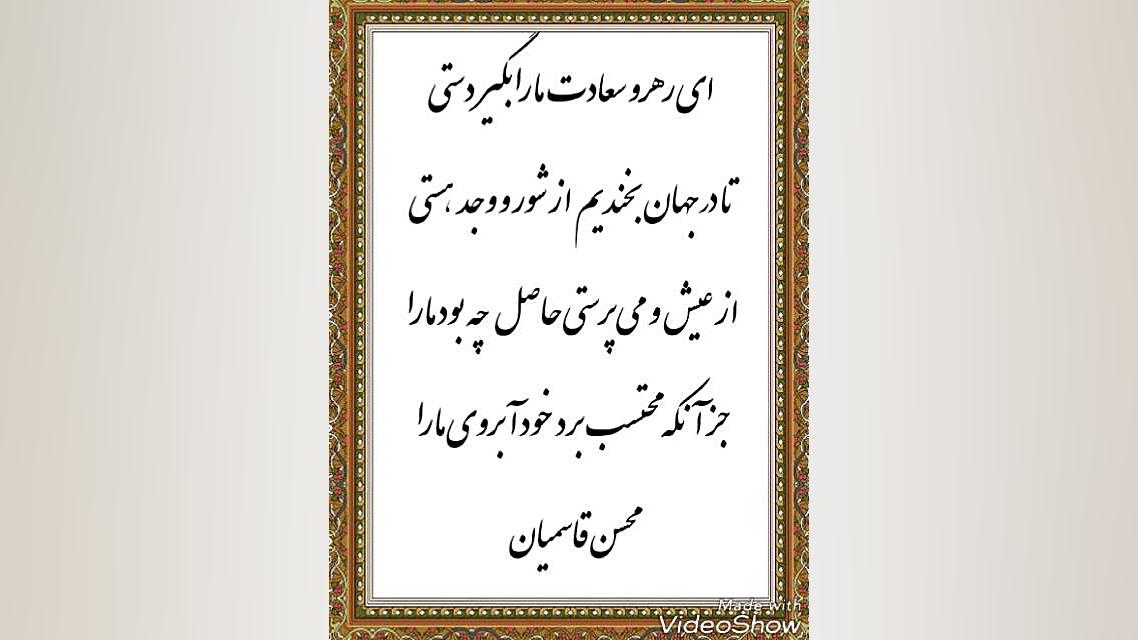 ای رهرو سعادت ما را بگیر دستی
تا در جهان بخندیم از شور و وجد هستی
از عیش و می پرستی حاصل چه بود ما را
جز آنکه محتسب برد خود آبروی ما را
محسن قاسمیان
Made with
VideoShow